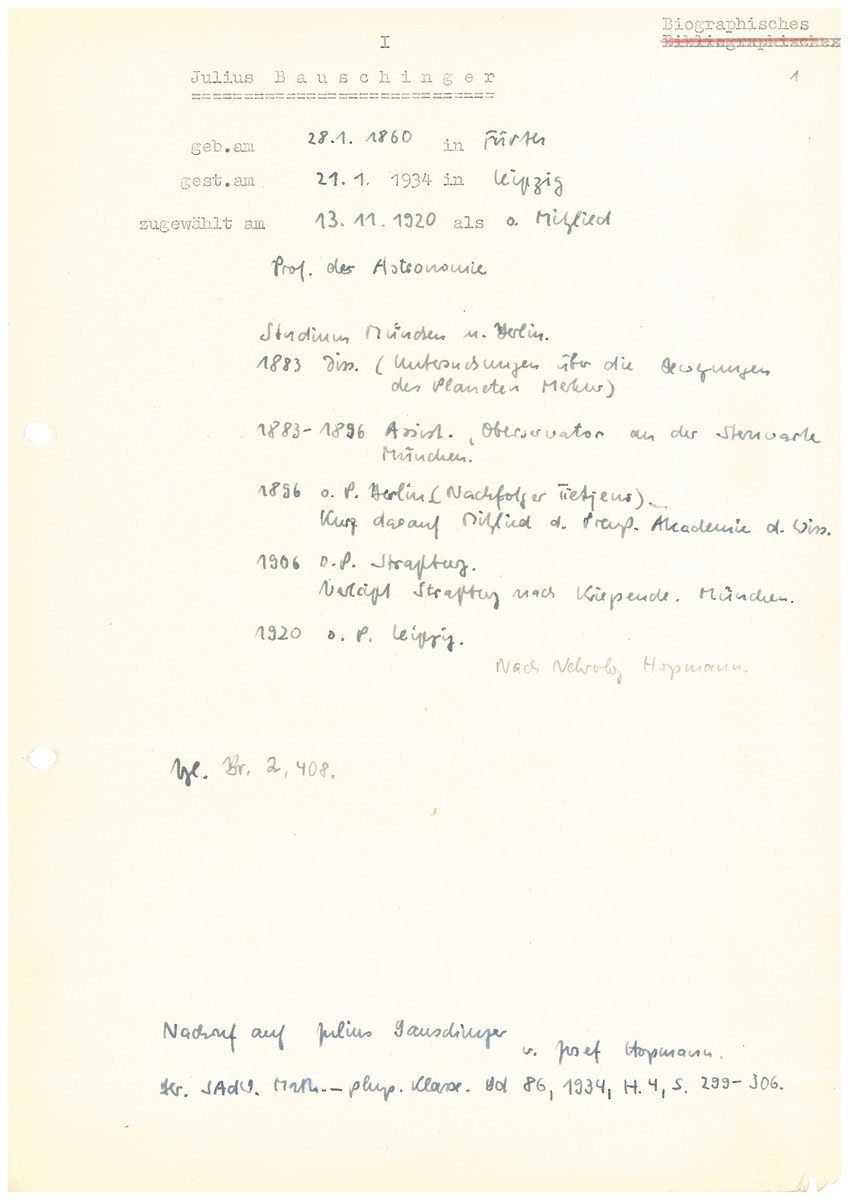 Biographisches
Bibliographisches
I
1
Julius Bauschinger
===========================
geb.am 28.1. 1860 in Fürth
gest.am 21.1. 1934 in Leipzig
zugewählt am 13.11.1920 als o. Mitglied
Prof. der Astronomie
Studium München u. Berlin.
1883 Diss. (Untersuchungen über die Bewegungen
des Planeten Merkur)
1883-1896 Assist., Observator an der Sternwarte
München.
1896 o. P. Berlin (Nachfolger Tietjens).
Kurz darauf Mitglied d. Preuß. Akademie d. Wiss.
1906 o.P. Straßburg.
Verläßt Straßburg nach Kriegsende. München.
1920 o. P. Leipzig.
Nach Nekrolog Hopmann.
Vgl. Br. 2, 408.
Nachruf auf Julius Bauschinger
v. Josef Hopmann.
Ber. SAdW. Math.-phys. Klasse. Bd 86, 1934, H. 4, S. 299-306.